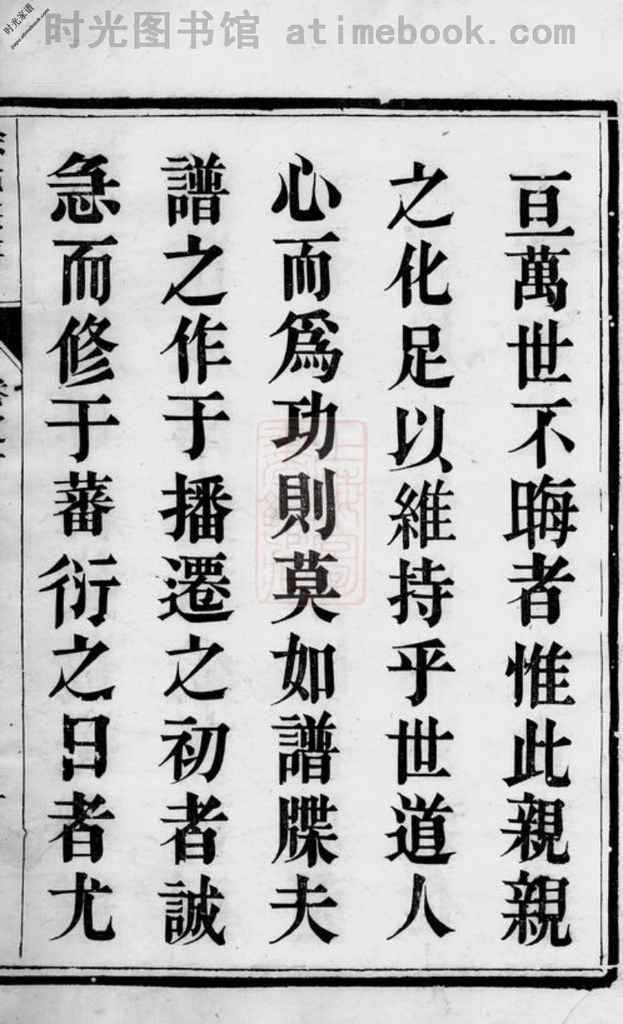 时光图书馆 atimebook.com
时光家谱
亘萬世不晦者惟此親親
之化足以維持乎世道人
心而爲功則莫如譜牒夫
譜之作于播遷之初者誠
急而修于蕃衍之日者尤